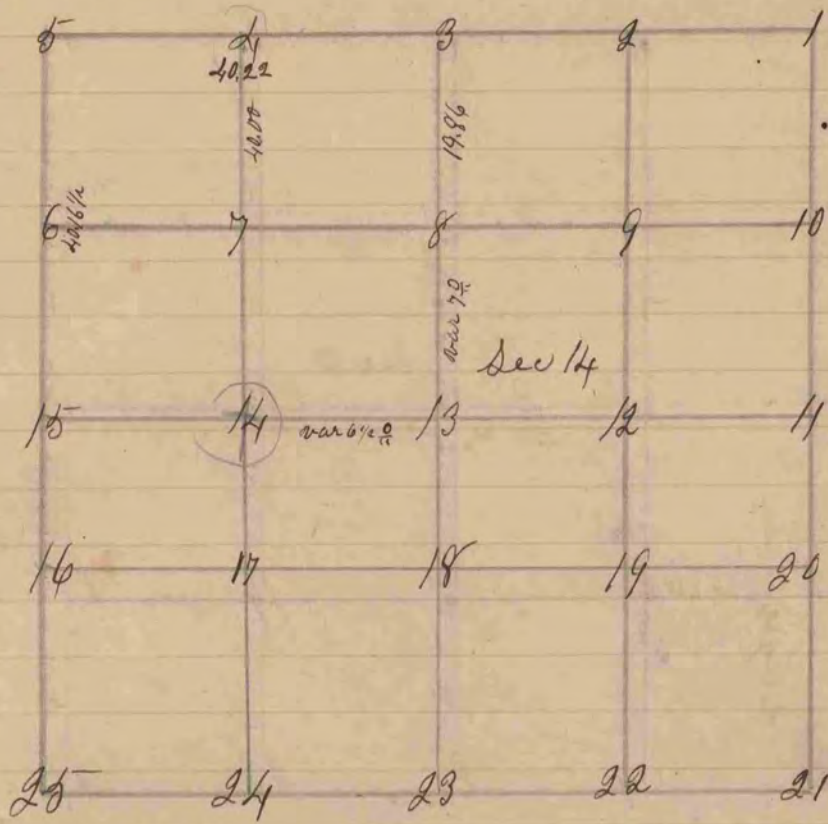 5 4 3 2 1
40.22
40.00
19.86
6 7 8 9 10
40.16½
var 7 0/11
Sec 14
15 14 var 6½ 0/11 13 12 11
16 17 18 19 20
25 24 23 22 21